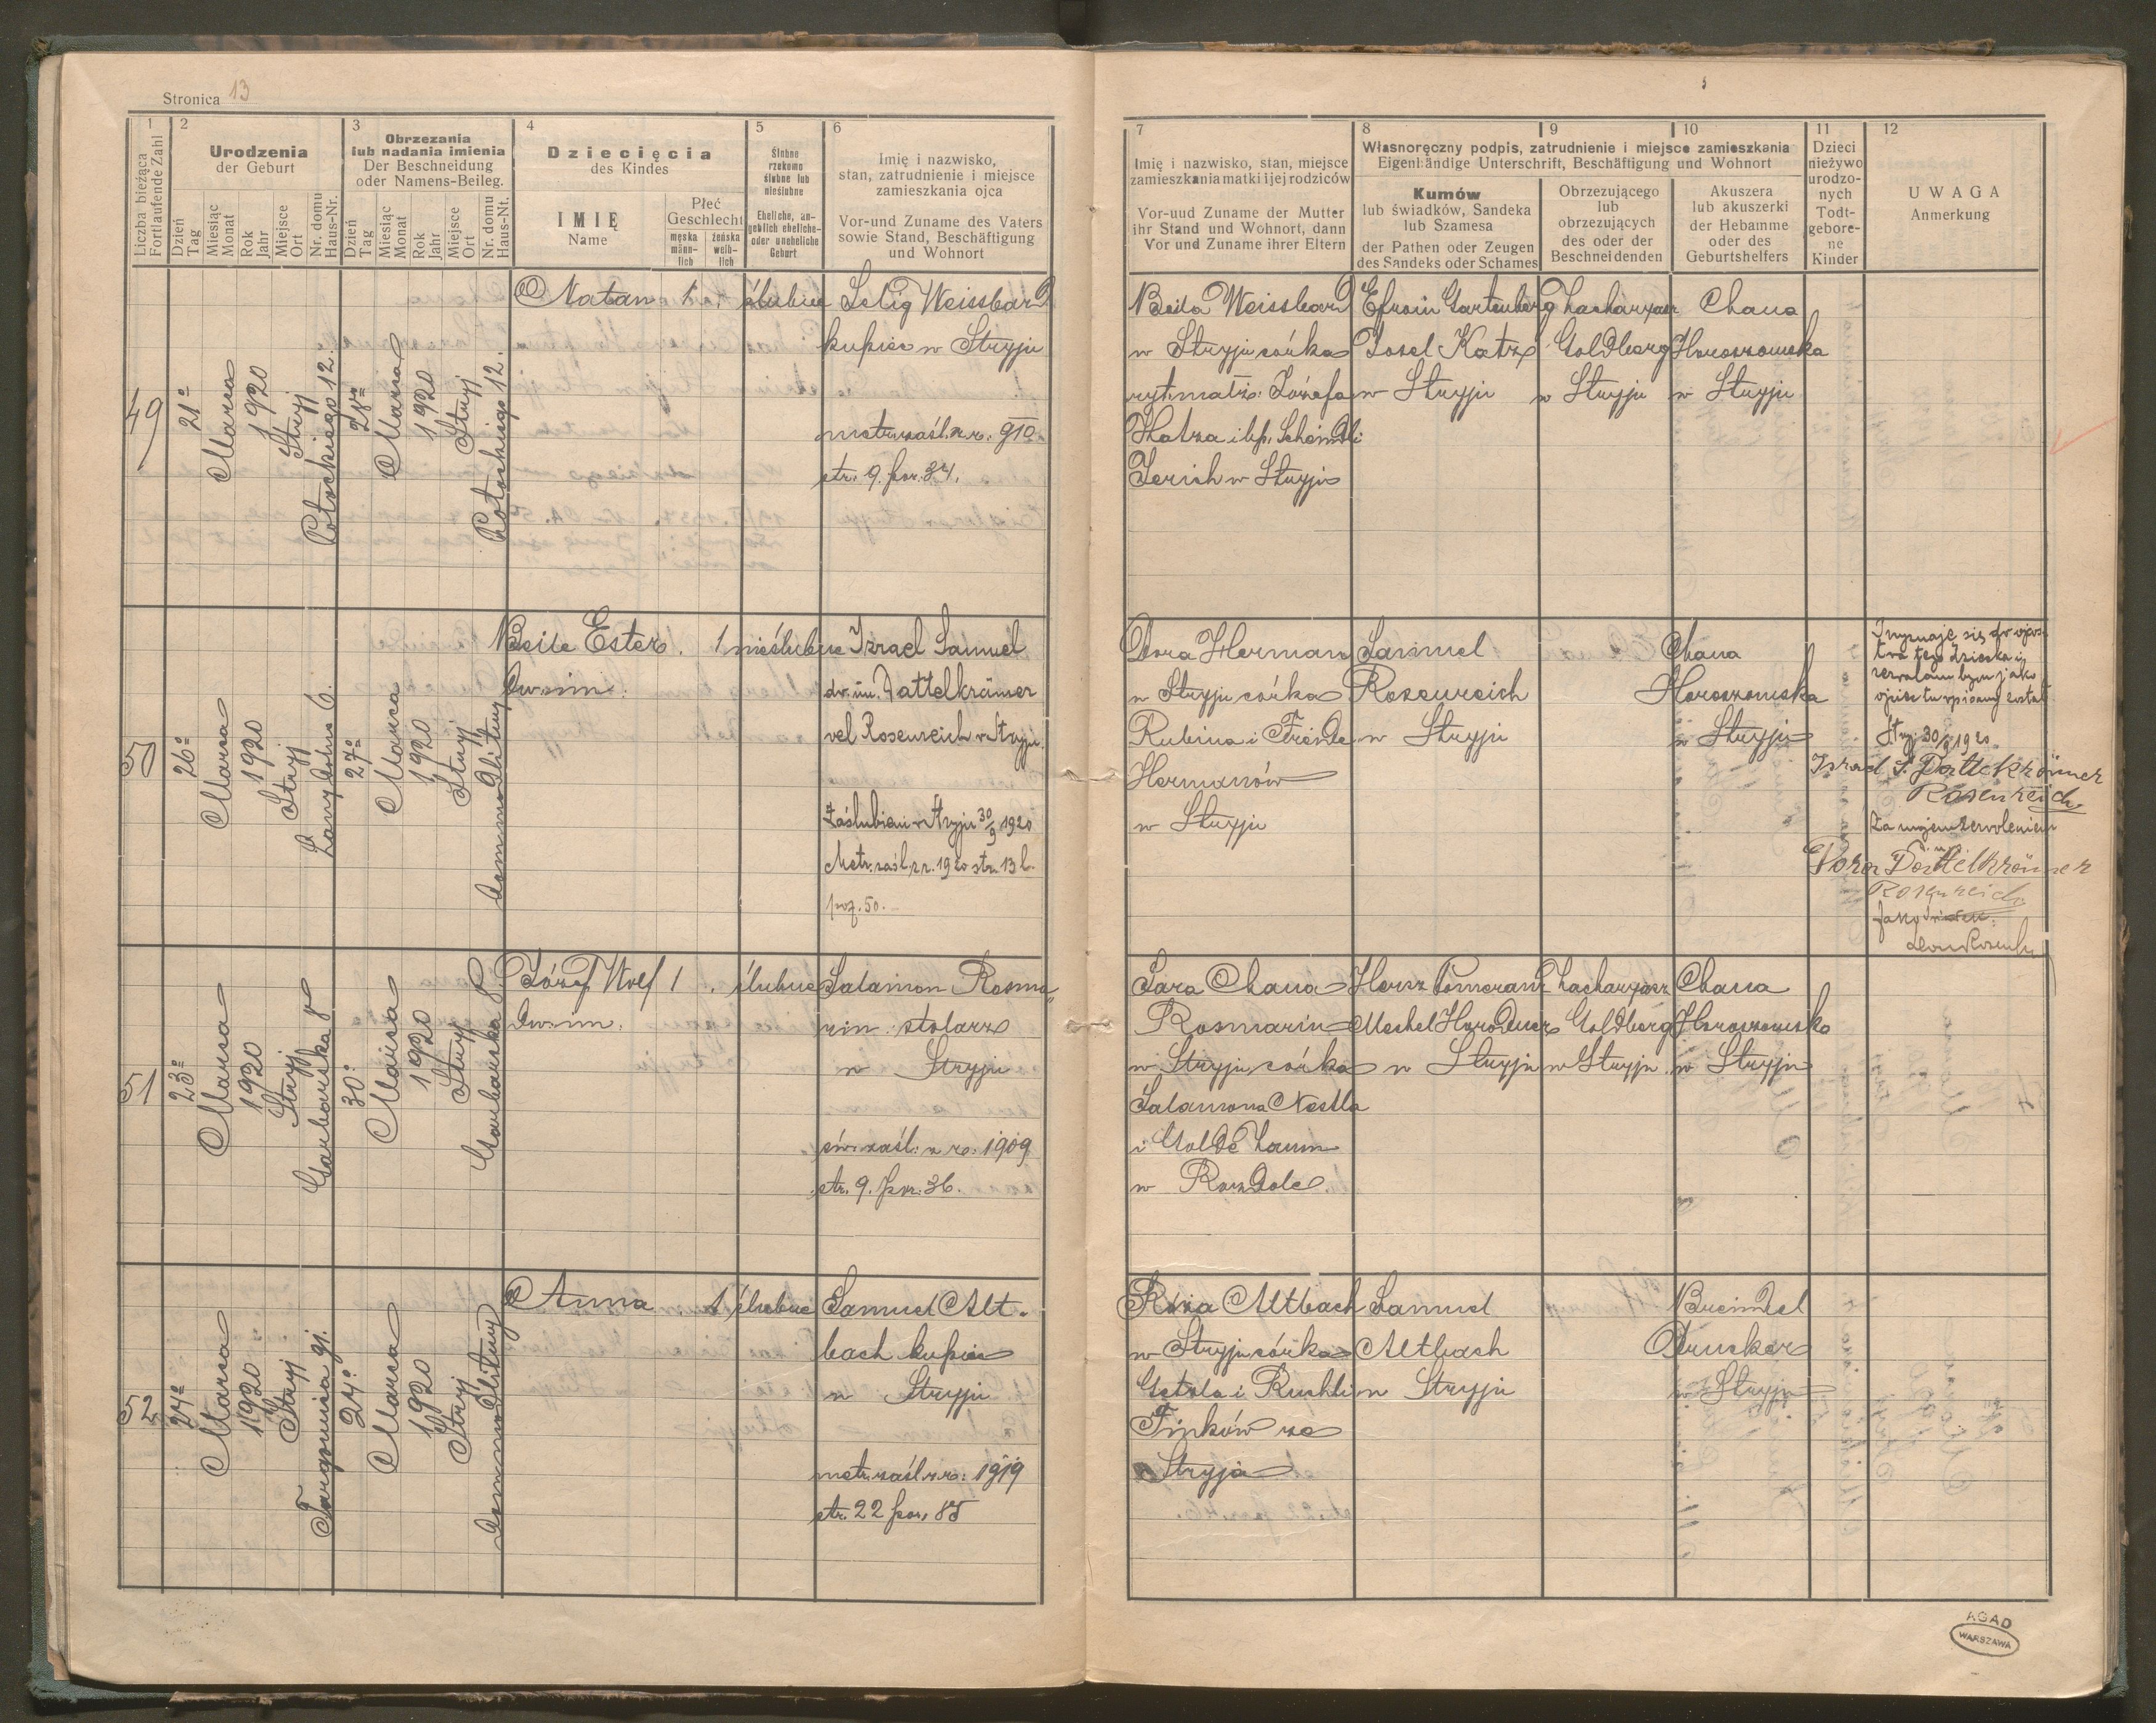 Stronica 13
1
Liczba bieżąca
Fortlaufende Zahl
2
Urodzenia
der Geburt
Dzień
Tag
Miesiąc
Monat
Rok
Jahr
Miejsce
Ort
Nr. domu
Haus-Nr.
3
Obrzezania
lub nadania imienia
Der Beschneidung
oder Namens-Beileg.
Dzień
Tag
Miesiąc
Monat
Rok
Jahr
Miejsce
Ort
Nr. domu
Haus-Nt.
4
Dziecięcia
des Kindes
IMIĘ
Name
Płeć
Geschlecht
męska
männ-
lich
żeńska
weib-
lich
5
Ślubne
rzekomo
ślubne lub
nieślubne
Eheliche, an-
geblich eheliche
oder uneheliche
Geburt
6
Imię i nazwisko,
stan, zatrudnienie i miejsce
zamieszkania ojca
Vor-und Zuname des Vaters
sowie Stand, Beschäftigung
und Wohnort
7
Imię i nazwisko, stan, miejsce
zamieszkania matki i jej rodziców
Vor-uud Zuname der Mutter
ihr Stand und Wohnort, dann
Vor und Zuname ihrer Eltern
8
9
10
Własnoręczny podpis, zatrudnienie i miejsce zamieszkania
Eigenhändige Unterschrift, Beschäftigung und Wohnort
Kumów
lub świadków, Sandeka
lub Szamesa
der Pathen oder Zeugen
des Sandeks oder Schames
Obrzezującego
lub
obrzezujących
des oder der
Beschneidenden
Akuszera
lub akuszerki
der Hebamme
oder des
Geburtshelfers
11
Dzieci
nieżywo
urodzo-
nych
Todt-
gebore-
ne
Kinder
12
UWAGA
Anmerkung
49
21º
Marca
1920
Stryj
Potockiego 12.
28º
Marca
1920
Stryj
Potockiego 12.
Natan
1
ślubne
Selig Weissbard
kupiec w Stryju
metr. zaśl. z r. 910
str. 9. poz. 34.
Beila Weissbard
w Stryju córka
ryt. małż. Józefa
Katza i
w Stryju
Efroim Gartenberg
Josel Katz
w Stryju
Zacharyasz
Goldberg
w Stryju
Chana
Horoszowska
w Stryju
50
26º
Marca
1920
Stryj
6.
27º
Marca
1920
Stryj
Beile Ester
dw. im.
1
nieślubne
Izrael Samuel
dw. im. Dattelkrämer
vel Rosenreich w Stryju.
Zaślubieni w Stryju 30/9 1920
Metr. zaśl. z r. 1920 str. 13 l.
poz. 50.
Dora Herman
w Stryju córka
Rubina i Freide
Hermanów
w Stryju
Samuel
Rosenreich
w Stryju
Chana
Horoszowska
w Stryju
Przyznaję się do ojcos
twa tego dziecka i
zezwalam bym jako
ojciec tu wpisany został
Stryj 30/9 1920
Israel S. Dattelkrämer
Rosenreich
Za mojem zezwoleniem
Dora Dattelkrämer
Rosenreich
51
23º
Marca
1920
Stryj
Garbarska 8
30º
Marca
1920
Stryj
Garbarska 8.
Józef Wolf
dw. im.
1
ślubne
Salamon Rosma„
rin stolarz
w Stryju
zaśl. z r. 1909
str. 9. poz. 36.
Sara Chana
Rosmarin
w Stryju, córka
Salamona Nestla
i Golde
w Rozdole
Hersz Pomeranz
Meshel Horodner
w Stryju
Zacharyasz
Goldberg
w Stryju
Chana
Horoszowska
w Stryju
52
24º
Marca
1920
Stryj
Targowica
24º
Marca
1920
Stryj
Anna
1
ślubne
Samuel Alt-
bach kupiec
w Stryju
metr. zaśl. z r. 1919
str. 22 poz. 85
Róża Altbach
w Stryju córka
Getzla i Ruchli
Finków ze
Stryja
Samuel
Altbach
w Stryju
Breindel
Drucker
w Stryju
AGAD
WARSZAWA